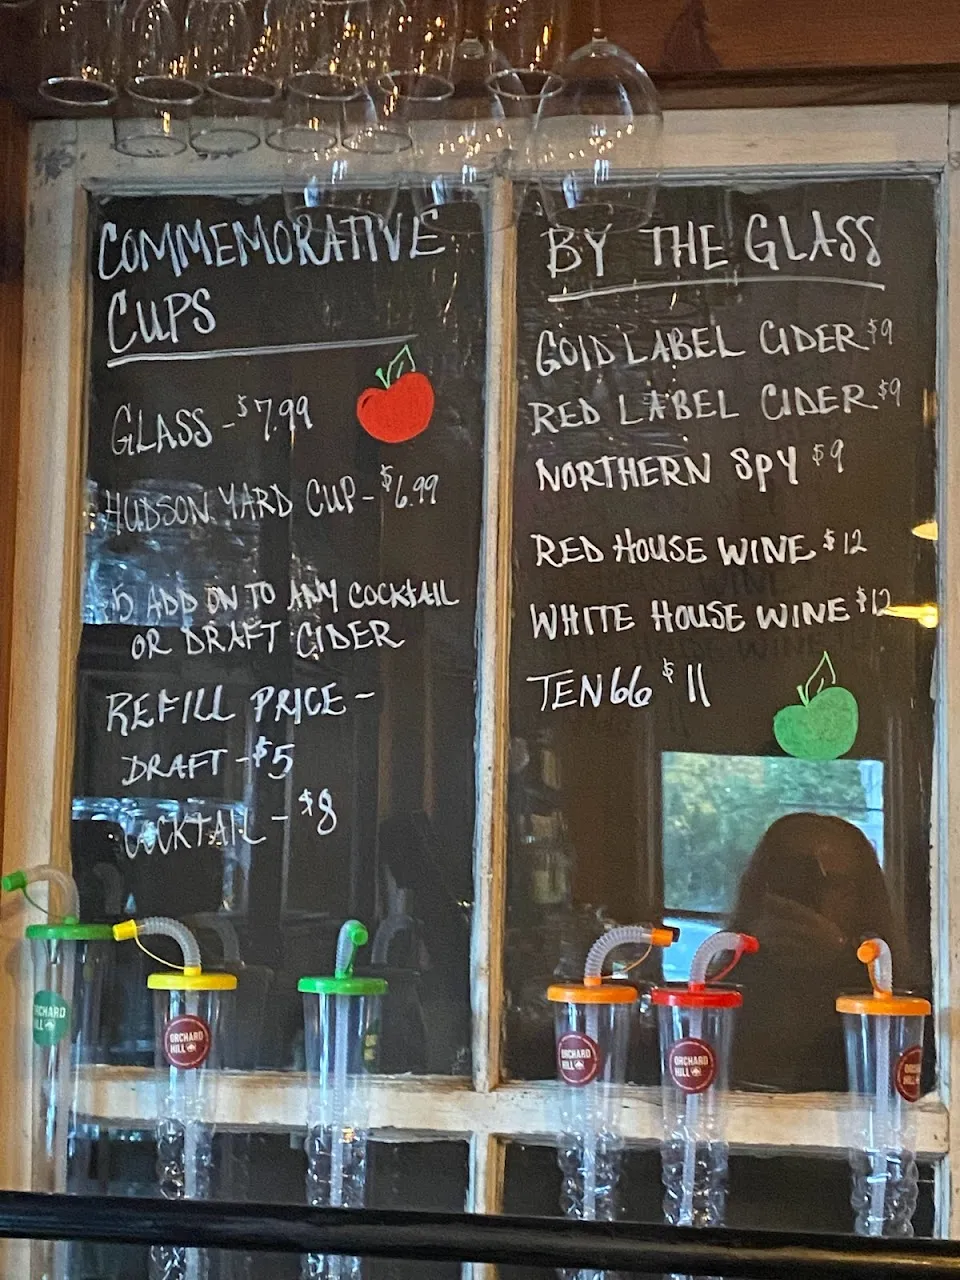 COMMEMORATIVE
CUPS
GLASS - $7.99
HUDSON YARD CUP - $6.99
5 ADD ON TO ANY COCKTAIL
OR DRAFT CIDER
REFILL PRICE -
DRAFT - $5
COCKTAIL - $8
BY THE GLASS
GOLD LABEL CIDER $9
RED LABEL CIDER $9
NORTHERN SPY $9
RED HOUSE WINE $12
WHITE HOUSE WINE $12
TEN66 $11
ORCHARD
HILL
ORCHARD
HILL
ORCHARD
HILL